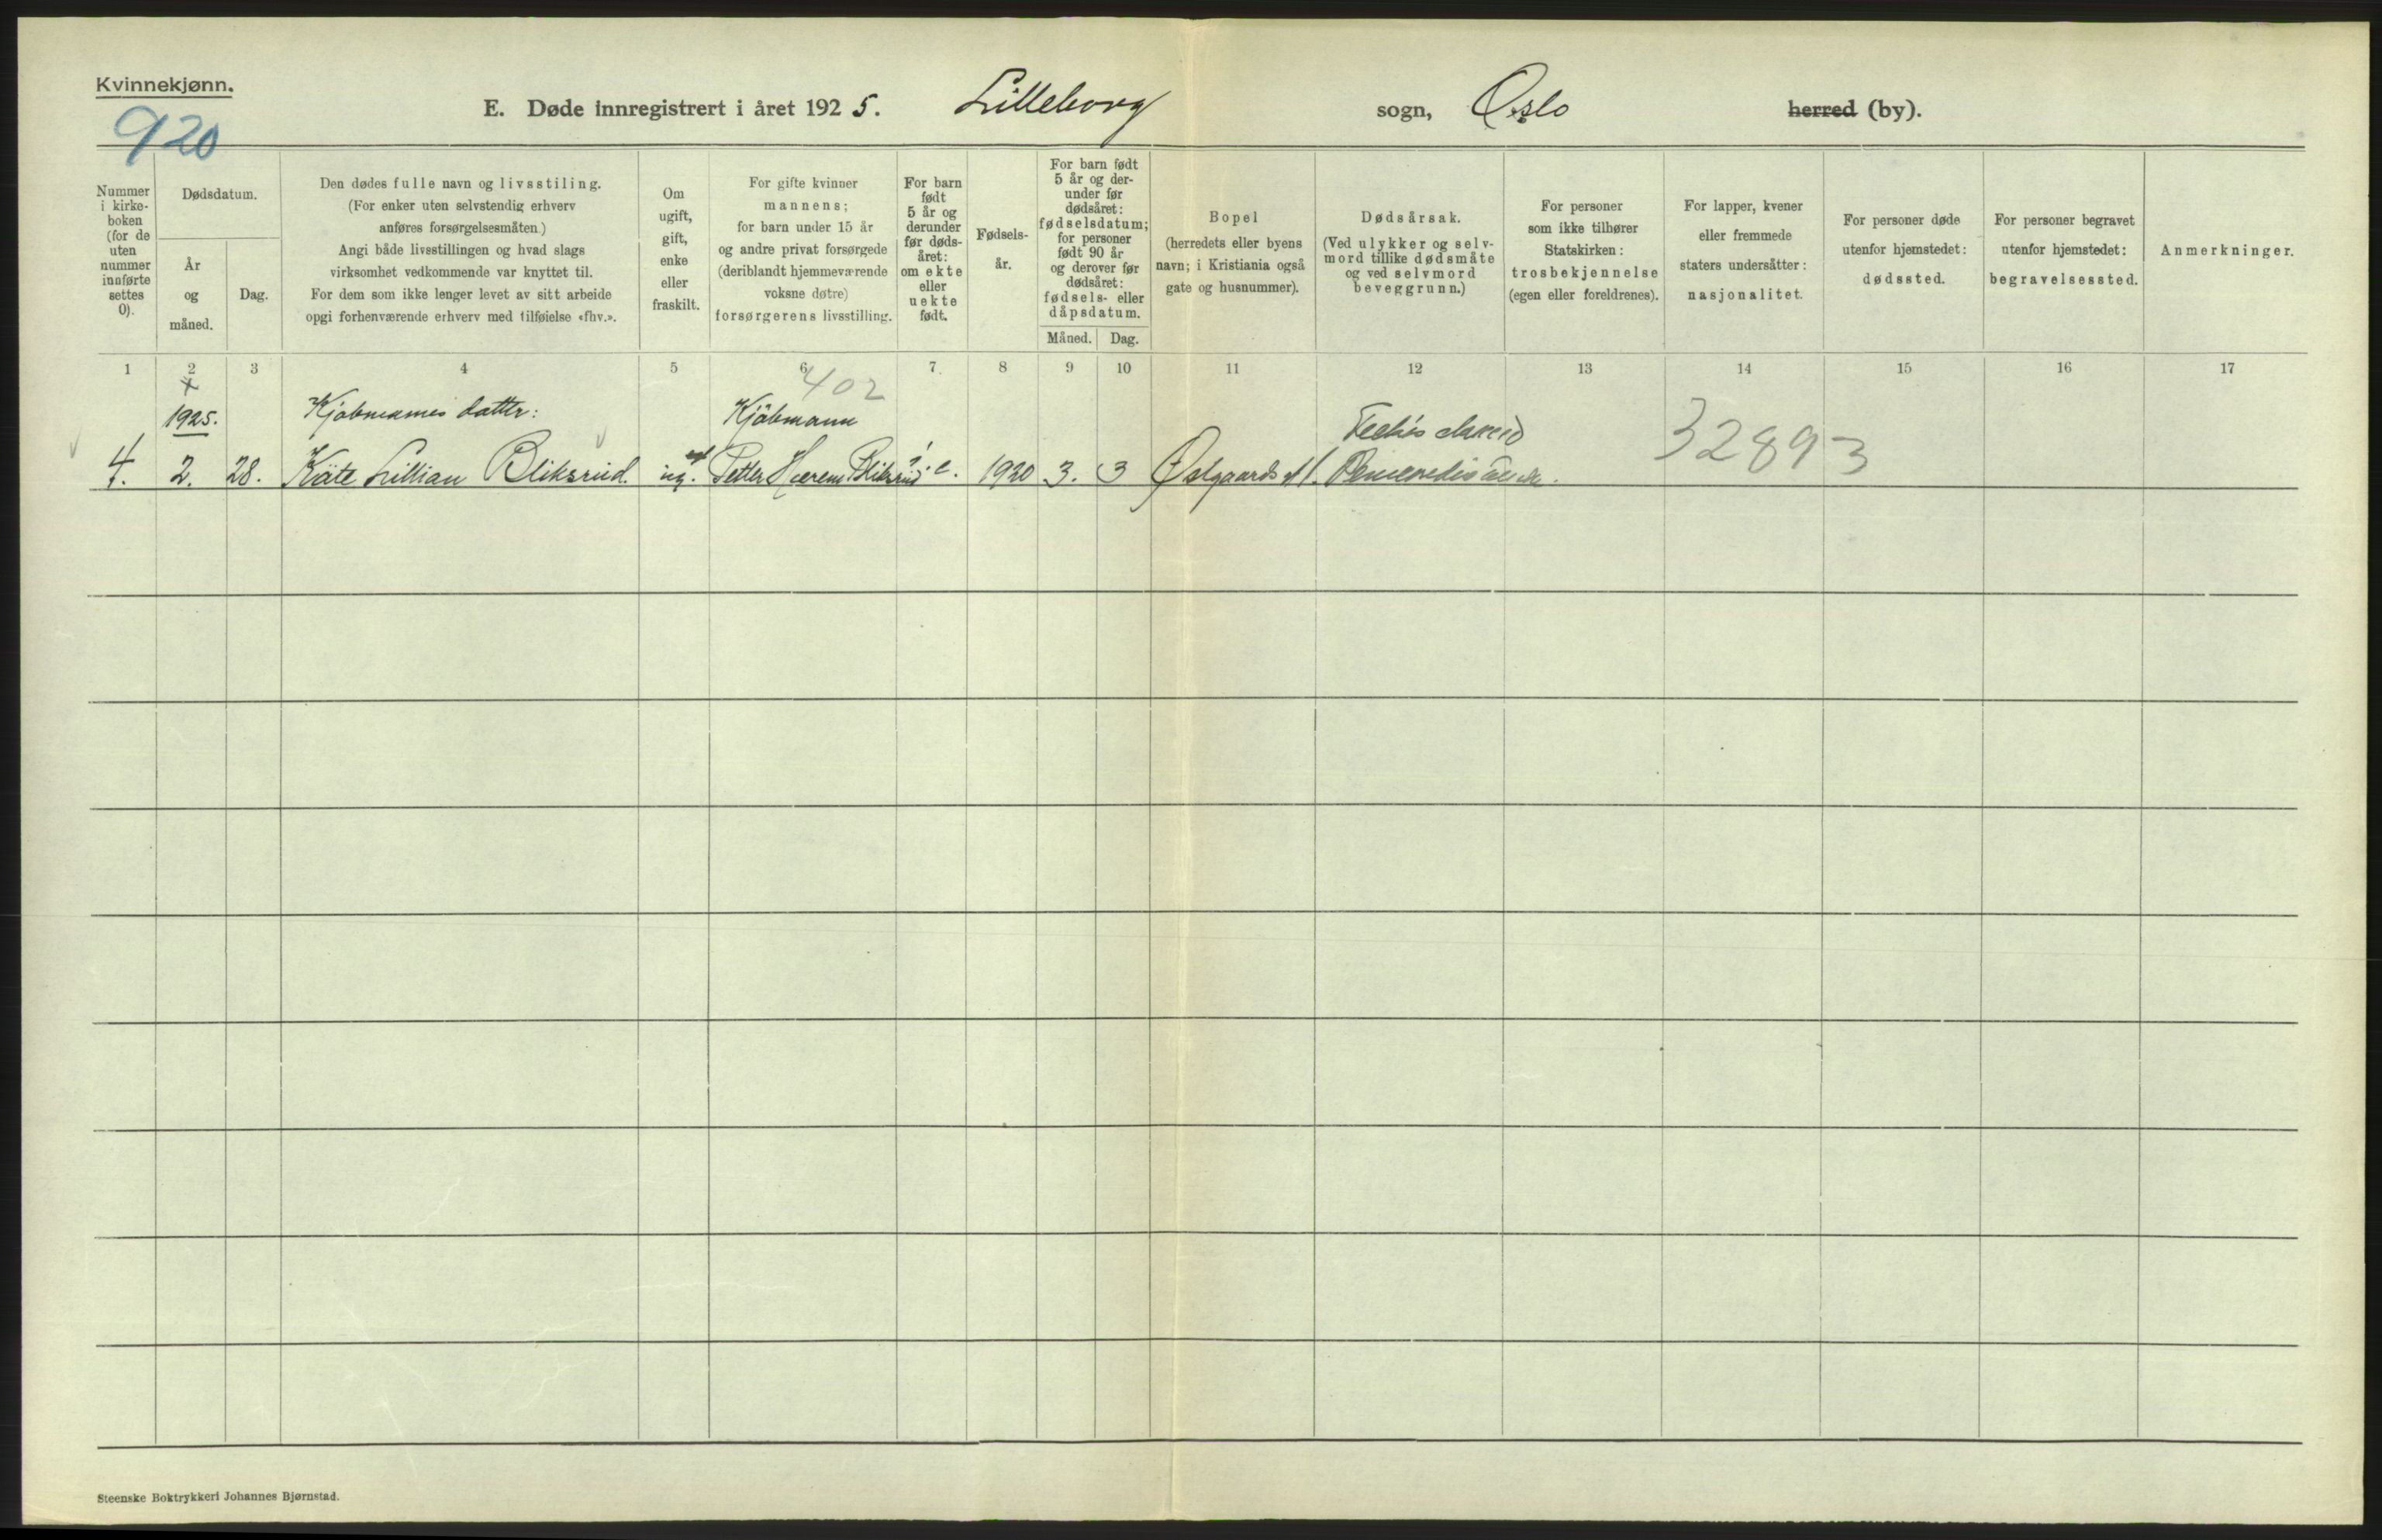 Kvinnekjønn.
920
E. Døde innregistrert i året 1925. Lilleborg sogn, Oslo herred (by).
Nummer i kirke-boken (for de uten nummer innførte settes 0).
Dødsdatum.
År og måned.
Dag.
Den dødes fulle navn og livsstiling.
(For enker uten selvstendig erhverv
anføres forsørgelsesmåten.)
Angi både livsstillingen og hvad slags
virksomhet vedkommende var knyttet til.
For dem som ikke lenger levet av sitt arbeide
opgi forhenværende erhverv med tilføielse «fhv.».
Om
ugift,
gift,
enke
eller
fraskilt.
For gifte kvinner
mannens;
for barn under 15 år
og andre privat forsørgede
(deriblandt hjemmeværende
voksne døtre)
forsørgerens livsstilling.
For barn
født
5 år og
derunder
før døds-
året:
om ekte
eller
uekte
født.
Fødsels-
år.
For barn født
5 år og der-
under før
dødsåret:
fødselsdatum;
for personer
født 90 år
og derover før
dødsåret:
fødsels- eller
dåpsdatum.
Måned. Dag.
Bopel
(herredets eller byens
navn; i Kristiania også
gate og husnummer).
Dødsårsak.
(Ved ulykker og selv-
mord tillike dødsmåte
og ved selvmord
beveggrunn.)
For personer
som ikke tilhører
Statskirken:
trosbekjennelse
(egen eller foreldrenes).
For lapper, kvener
eller fremmede
staters undersåtter:
nasjonalitet.
For personer døde
utenfor hjemstedet:
dødssted.
For personer begravet
utenfor hjemstedet:
begravelsessted.
Anmerkninger.
1 2 3 4 5 6 7. 8 9 10 11 12 13 14 15 16 17
402
1925. Kjøbmanns datter: Kjøbmann
32893
4. 2. 28. Käte Lillian Bliksrud. ug. Petter Hærem Bliksrud e. 1920 3. 3 Østgaards
Steenske Boktrykkeri Johannes Bjørnstad.